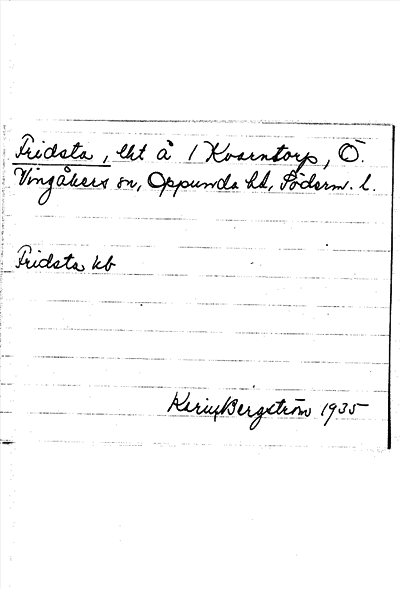 Fridsta, lht å 1 Kvarntorp, Ö.
Vingåkers sn, Oppunda hd, Söderm. l.
Fridsta kb
Karin Bergström 1935